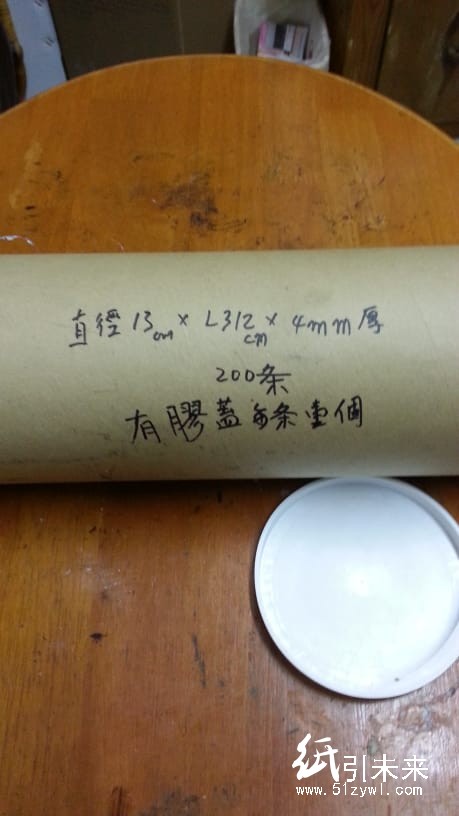 直徑13cm × L312cm × 4mm厚
200条
有膠蓋每条壹個
纸引未来
www.51zywl.com